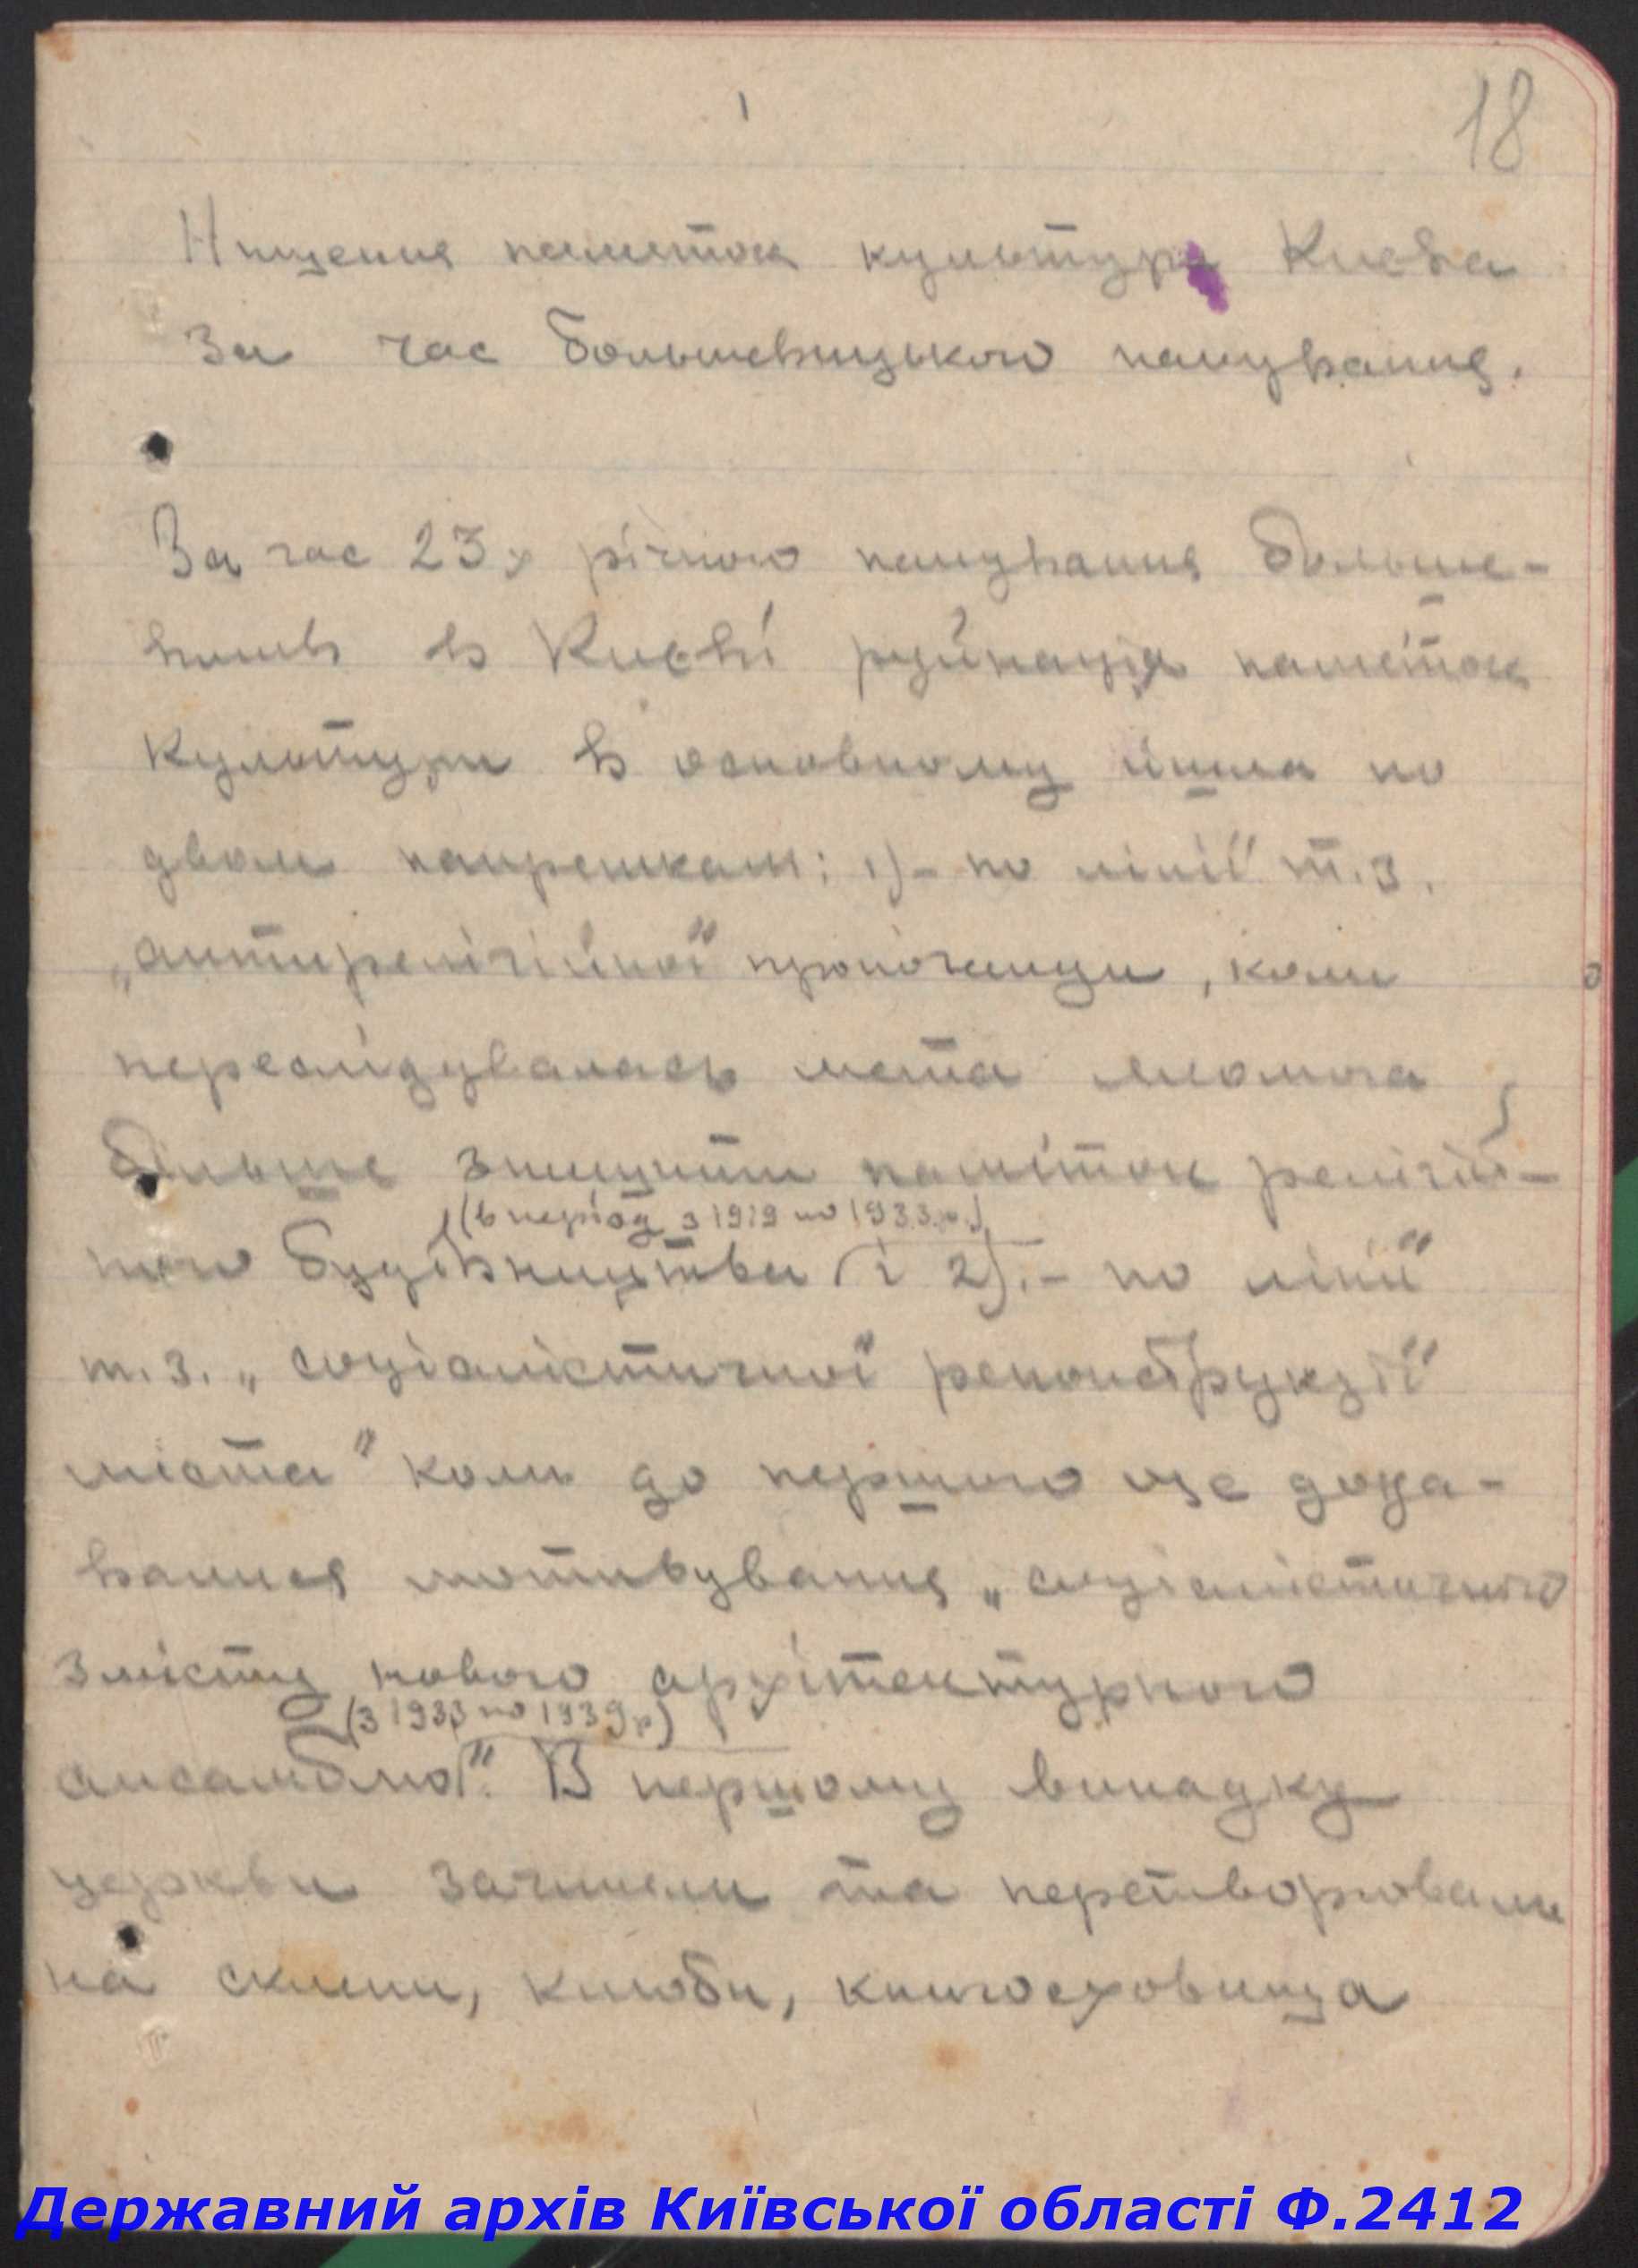 1
18
Нищення памяток культури Києва
За час большевицького панування.
За час 23х річного панування больше-
виків в Києві руйнація памяток
культури в основному йшла по
двом напрямкам: 1)- по лінії т.з.
„антирелігійної" пропоганди, коли
переслідувалась мета якомога
більше знищити памяток релігій-
(в період з 1919 по 1933р.)
ного будівництва і 2).- по лінії
т.з. „соціалістичної реконструкції
міста" коли до першого ще дода-
валися мотивування „соціалістичного
змісту нового архітектурного
(з 1933 по 1939р)
ансамблю". В першому випадку
церкви зачиняли та перетворювали
на склепи, клюби, книгосховища
Державний архів Київської області Ф.2412